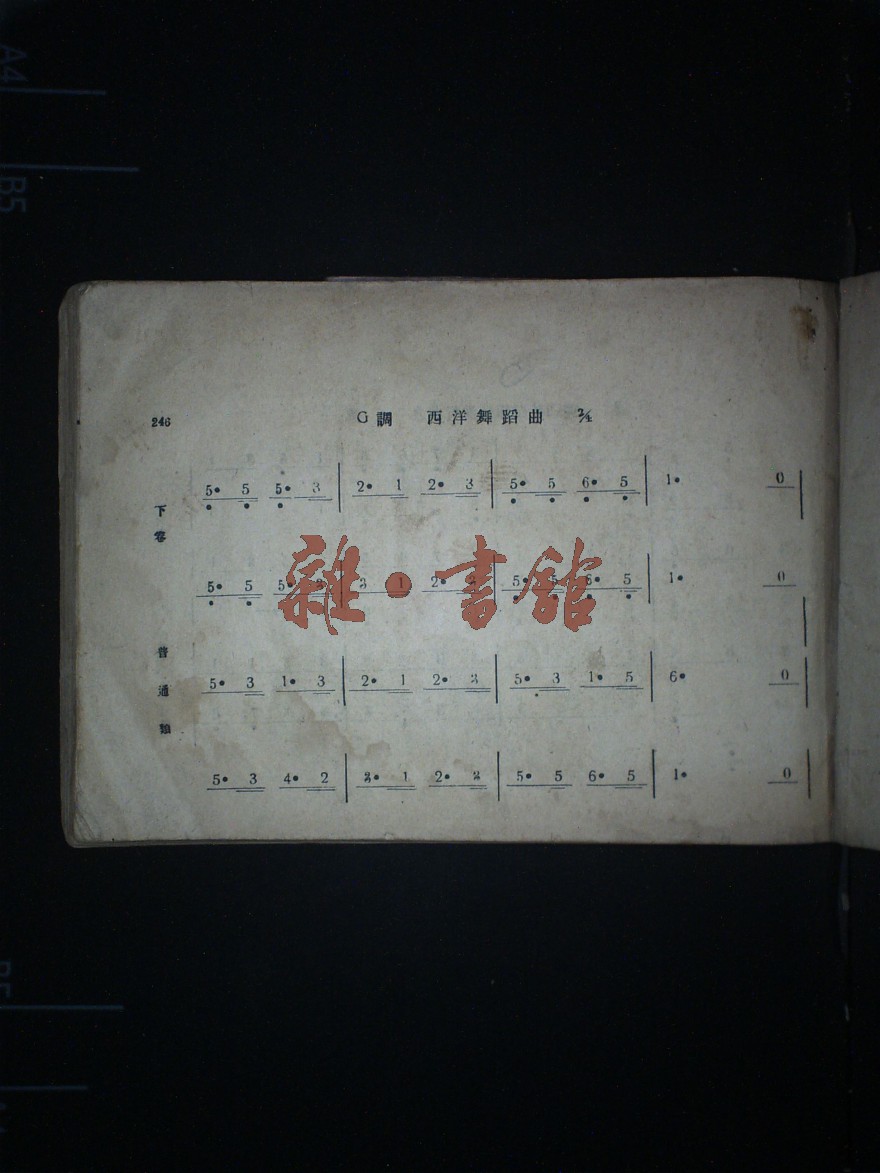 246
G調 西洋舞蹈曲 2/4
下卷
普通類
5• 5 5• 3 | 2• 1 2• 3 | 5• 5 6• 5 | 1• 0 |
5• 5 5• 3 1 2• 5• 5 6• 5 | 1• 0
5• 3 1• 3 | 2• 1 2• 3 | 5• 3 1• 5 | 6• 0 |
5• 3 4• 2 | 3• 1 2• 3 | 5• 5 6• 5 | 1• 0 |
雜•書館
A4
B5